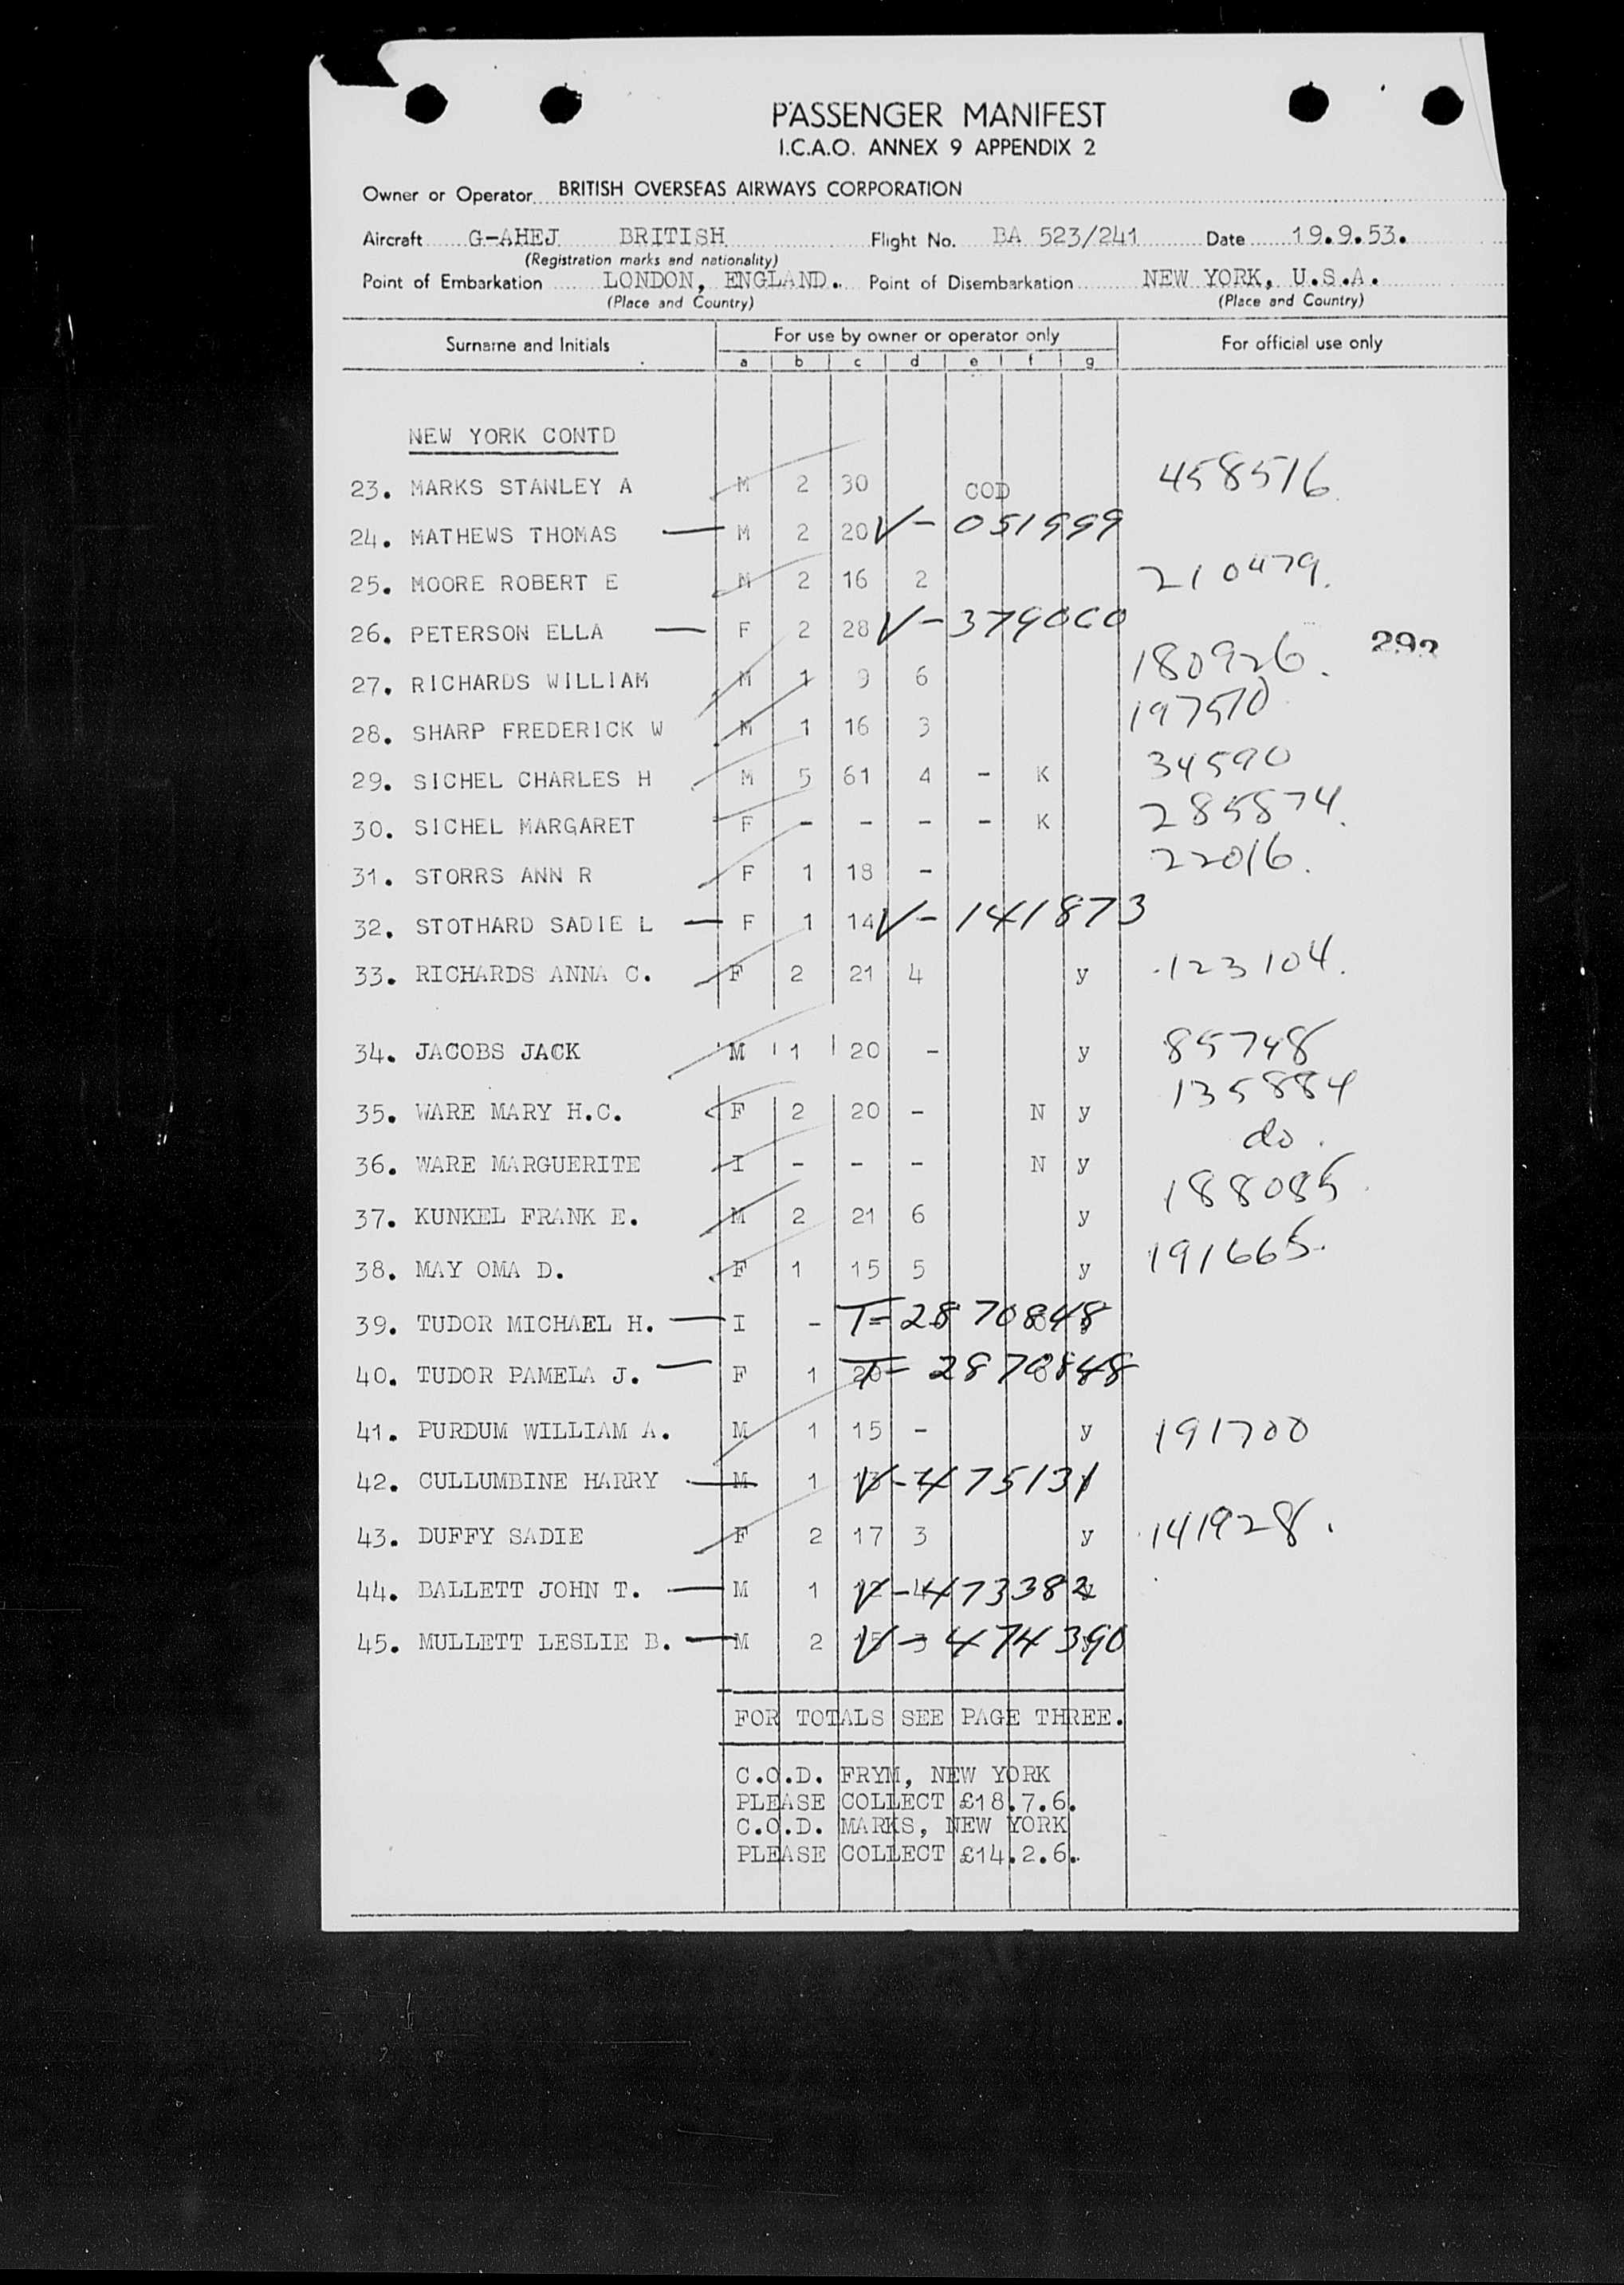 PASSENGER MANIFEST
I.C.A.O. ANNEX 9 APPENDIX 2
Owner or Operator BRITISH OVERSEAS AIRWAYS CORPORATION
Aircraft G-AHEJ BRITISH Flight No. BA 523/241 Date 19.9.53.
(Registration marks and nationality)
Point of Embarkation LONDON, ENGLAND. Point of Disembarkation NEW YORK, U.S.A.
(Place and Country) (Place and Country)
Surname and Initials For use by owner or operator only For official use only
a b c d e f g
NEW YORK CONTD
23. MARKS STANLEY A M 2 30 COD 458516
24. MATHEWS THOMAS — M 2 20 V-051999
25. MOORE ROBERT E M 2 16 2 210479.
26. PETERSON ELLA — F 2 28 V-379060
292
27. RICHARDS WILLIAM M 1 9 6 180926.
28. SHARP FREDERICK W M 1 16 3 197570
29. SICHEL CHARLES H M 5 61 4 - K 34590
30. SICHEL MARGARET F - - - - K 285874.
31. STORRS ANN R F 1 18 - 22016.
32. STOTHARD SADIE L — F 1 14 V-141873
33. RICHARDS ANNA C. F 2 21 4 y 123104.
34. JACOBS JACK M 1 20 - y 85748
35. WARE MARY H.C. F 2 20 - N y 135884
36. WARE MARGUERITE I - - - N y do.
37. KUNKEL FRANK E. M 2 21 6 y 188085
38. MAY OMA D. F 1 15 5 y 191665.
39. TUDOR MICHAEL H. — I - T=2870848
40. TUDOR PAMELA J. — F 1 20 T=2870848
41. PURDUM WILLIAM A. M 1 15 - y 191700
42. CULLUMBINE HARRY — M 1 V-475131
43. DUFFY SADIE F 2 17 3 y 141928.
44. BALLETT JOHN T. — M 1 V-473382
45. MULLETT LESLIE B. — M 2 V-474390
FOR TOTALS SEE PAGE THREE.
C.O.D. FRYM, NEW YORK
PLEASE COLLECT £18.7.6.
C.O.D. MARKS, NEW YORK
PLEASE COLLECT £14.2.6.